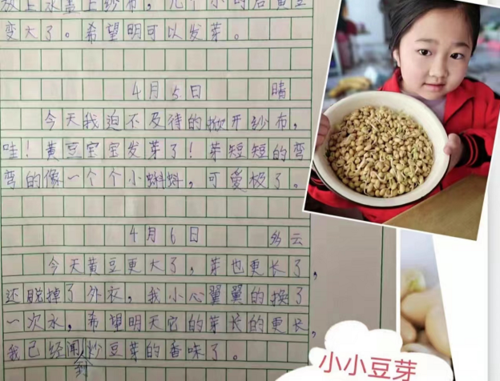 放上水盖上纱布，几个小时后黄豆
变大了。希望明可以发芽。
4月5日 晴
今天我迫不及待的掀开纱布，
哇！黄豆宝宝发芽了！芽短短的弯
弯的像一个个小蝌蚪，可爱极了。
4月6日 多云
今天黄豆更大了，芽也更长了，
还脱掉了外衣，我小心翼翼的换了
一次水，希望明天它的芽长的更长，
我已经闻到炒豆芽的香味了。
小小豆芽